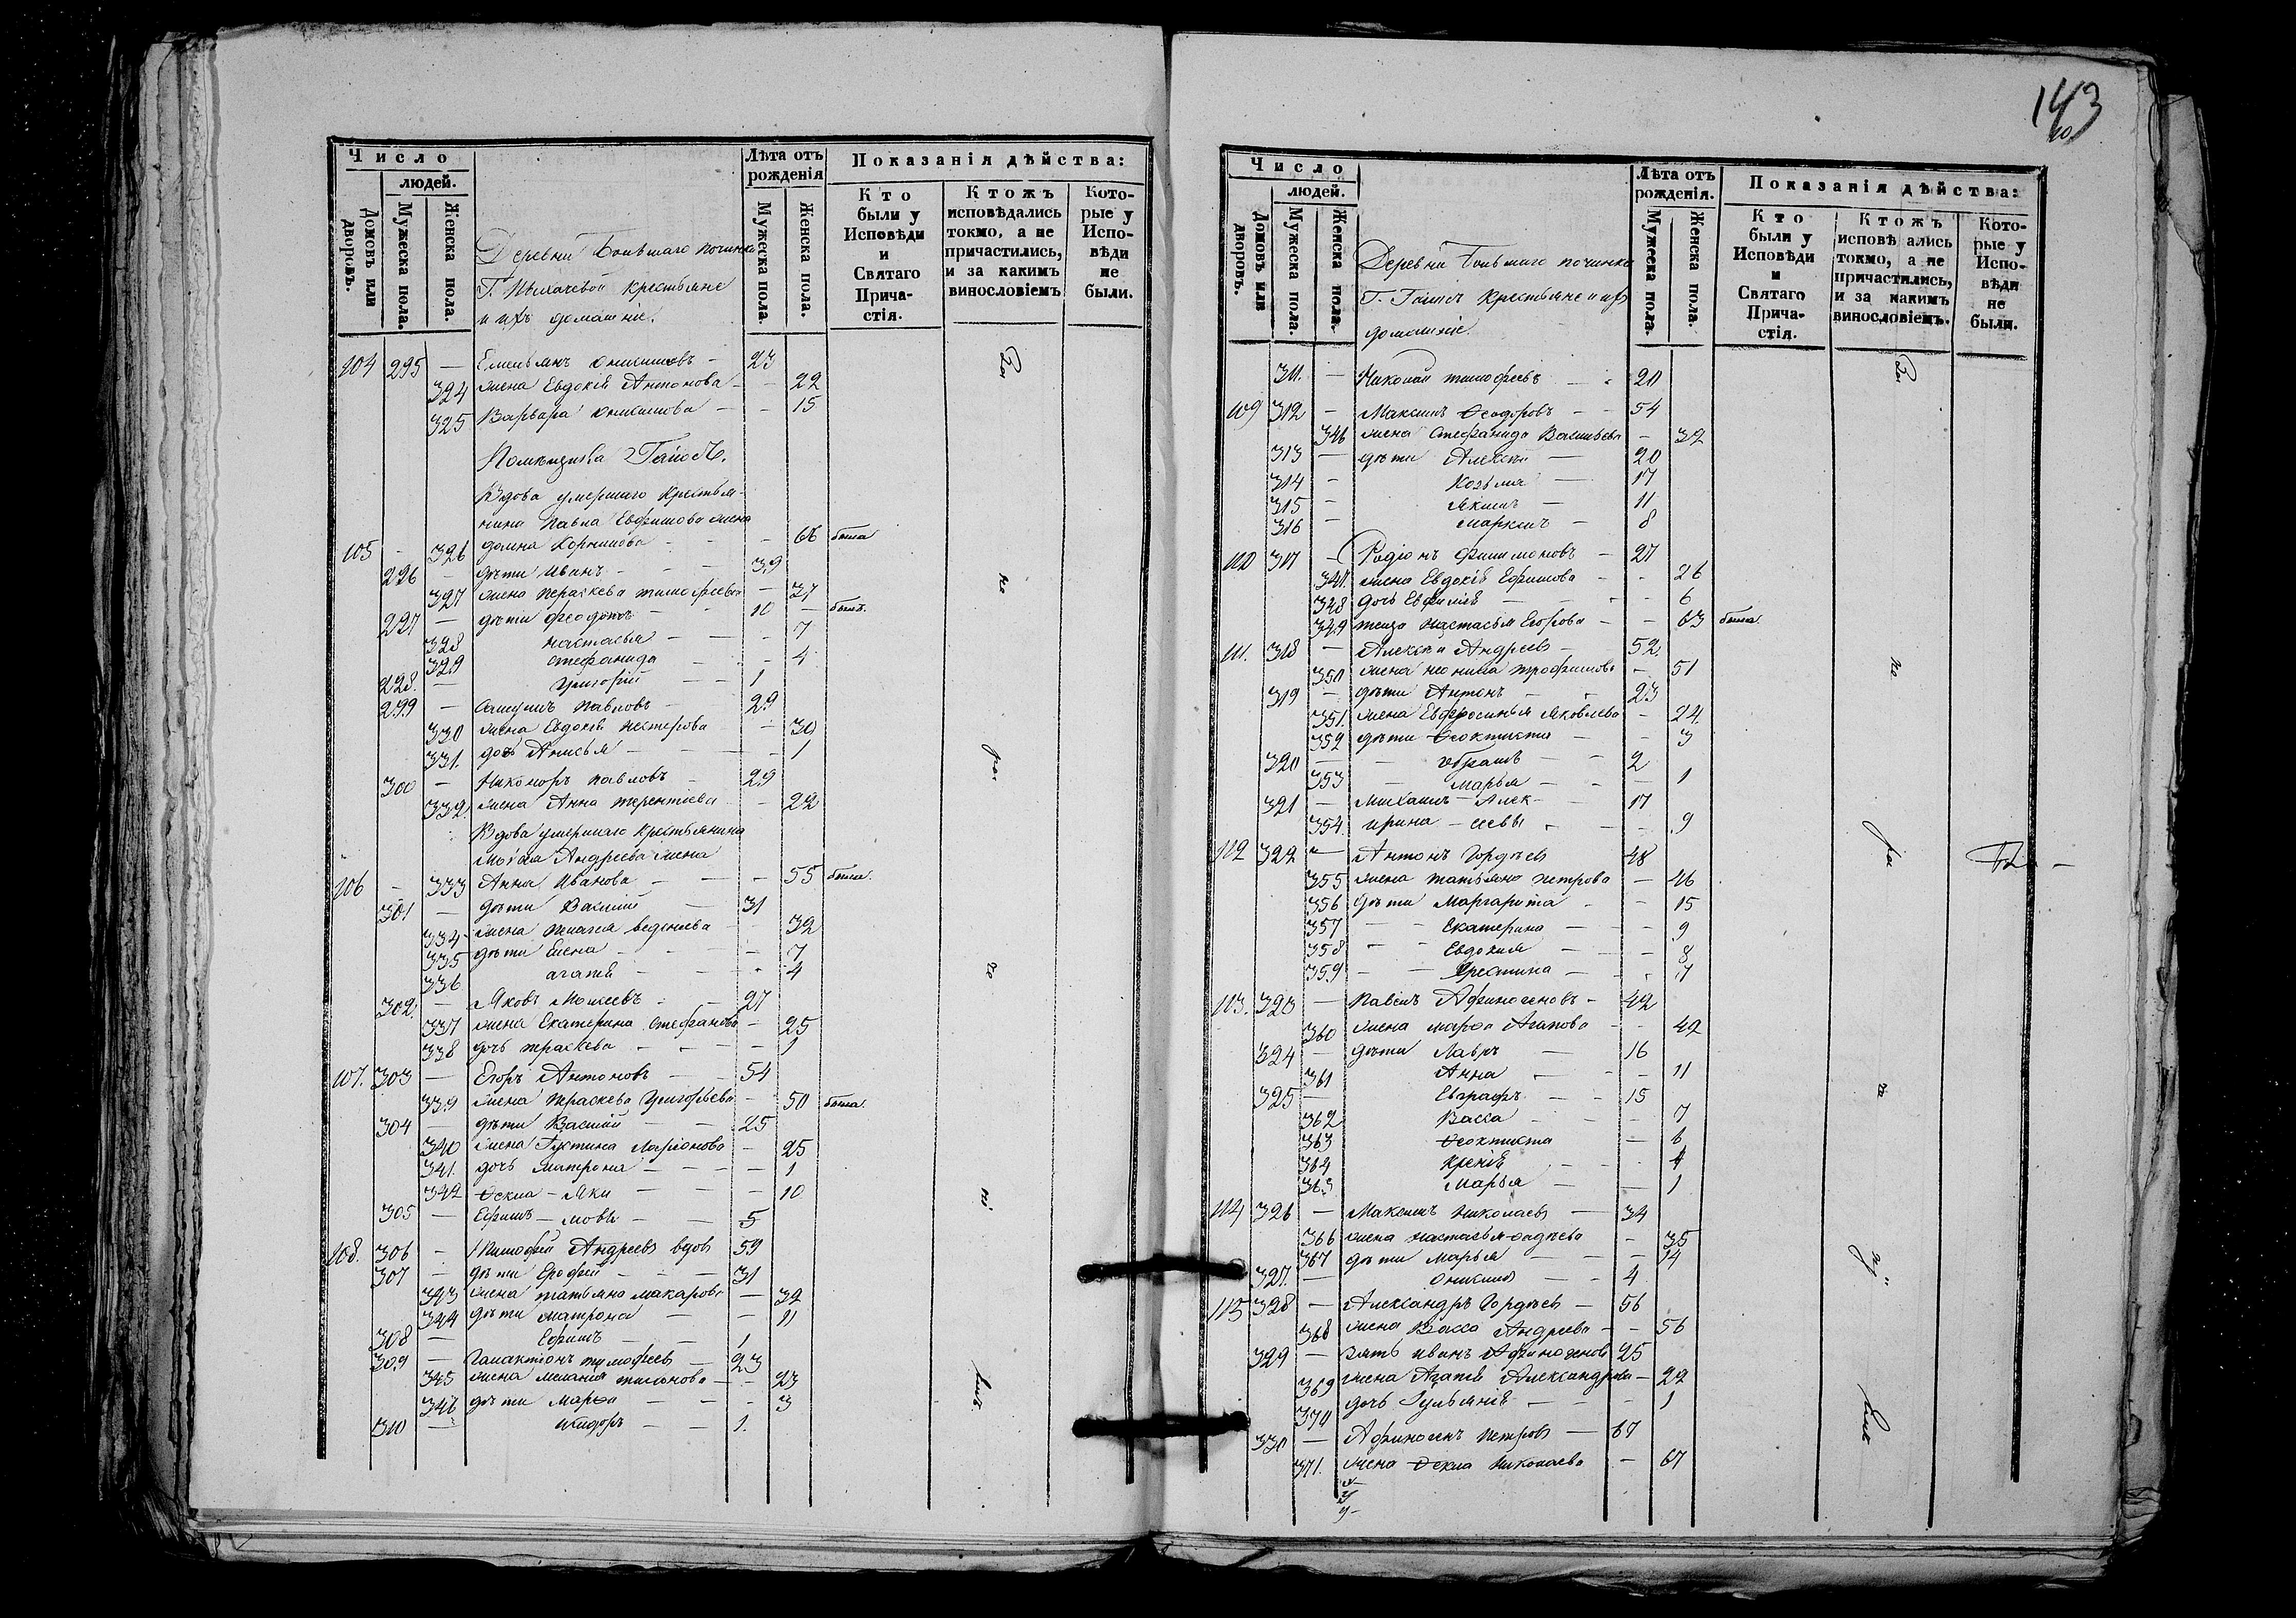 Число
людей.
Домовъ или дворовъ.
Мужеска пола.
Женска пола.
Деревни Большаго починка
крестьяне
и ихъ домашние.
Лѣта отъ рожденія
Мужеска пола.
Женска пола.
Показанія дѣйства:
Кто были у Исповѣди и Святаго Причастія.
Ктожъ исповѣдались токмо, а не причастились, и за какимъ винословіемъ
Которые у Исповѣди не были.
104 295 — Емельянъ Онисимовъ — 23
324 жена Евдокія Антонова — — 22
325 Варвара Онисимова — — 15
Вдова умершаго крестья-
нина Павла Евфимова жена
105 - 326 Домна Корнилова — - 66 была
296 — дѣти Иванъ - — 39
327 жена Параскева Тимофеева — 37
297 — дѣти Феодотъ - 10 — былъ.
328 Настасья — — - 7
329 Стефанида — - 4
298. — Григорій — — 1
299 — Самуилъ Павловъ — 29
330 жена Евдокія Нестерова — 30
331. дочь Анисья — — — 1
300 — Никоноръ Павловъ — 29
332. жена Анна Терентіева — 22
Вдова умершаго крестьянина
Моѵсея Андреева жена
106 - 333 Анна Иванова — — — 55 была.
301 — дѣти Василій — 31
334 жена Пелагея — 32
335 дѣти Елена — — 7
336 Агафія — — - 4
302. — Яковъ Моисеевъ - — 27
337 жена Екатерина Стефанова — 25
338 дочь Параскева — — — 1
107. 303 — Егоръ Антоновъ — — 54
339 жена Параскева Григорьева — 50 была.
304 — дѣти Василій — — 25
340 жена Іустина Ларіонова — 25
341. дочь Матрона — — — 1
342 Ѳекла — Яки — — — 10
305 — Ефимъ — мовы — — 5
108. 306 — Тимофей Андреевъ вдовъ 59
307 — дѣти Ерофей — — 31
343 жена Татьяна Макарова — 32
344 дѣти Матрона — — 11
308 — Ефимъ — — 1
309 — Галактіонъ Тимофеевъ — 23
345 жена Меланія — 23
346 дѣти Марѳа — — - 3
310 — Исидоръ — — 1.
143
Число
людей.
Домовъ или дворовъ.
Мужеска пола.
Женска пола.
Деревни Большаго починка
крестьяне и ихъ
домашніе.
Лѣта отъ рожденія.
Мужеска пола.
Женска пола.
Показанія дѣйства:
Кто были у Исповѣди и Святаго Причастія.
Ктожъ исповѣ ались токмо, а не причастились, и за какимъ винословіемъ.
Которые у Исповѣди не были.
311. — Николай Тимофеевъ — - 20
109 312 — Максимъ Ѳеодоровъ — — 54
346 жена Стефанида Васильева — 32
313 — дѣти Алексѣй — 20
314 — Козьма — 17
315 — Якимъ — 11
316 — 8
110 317 — Родіонъ Филимоновъ — 27
347. жена Евдокія Ефимова — - 26
348 дочь Евфимія — — 6
349 теща Настасья Егорова — — 63 была.
111. 318 — Алексѣй Андреевъ — 52.
350 жена Неонила Трофимова — 51
319 — дѣти Антонъ — - 23
351. жена Евфросинья Яковлева — 24.
352 дѣти Ѳеоктиста — — 3
320 — — — 2
353 — Марья — — 1
321 — Михаилъ — Алек- — 17
354. Ирина — сеевы - — 9
112 322 — Антонъ Гордѣевъ 48
355 жена Татьяна Петрова — 46
356 дѣти Маргарита - — 15
357 — — Екатерина — — 9
358 — — Евдокія — — 8
359 — — Христина — - 7
113. 323 — Павелъ Афиногеновъ — 42
360 жена Марѳа Агапова — - 42
324 — дѣти Лавръ — 16
361 Анна — — 11
325 — Евграфъ - — 15
362 Васса — — 7
363 Ѳеоктиста — 6
364 Ксенія — — 4
365 Марѳа — — 1
114 326 — Максимъ Николаевъ — 34
366 жена Настасья — 35
367 дѣти Марья — — 14
327. — Онисимъ — — 4
115 328 — Александръ Гордѣевъ — 56
368 жена Васса Андреева — — 56
329 — зять Иванъ Афиногеновъ 25
369 жена Агафія Александрова — 22
370 дочь Іульянія — — 1
330 — Афиногенъ Петровъ — 67
371. жена Ѳекла Николаева — 67